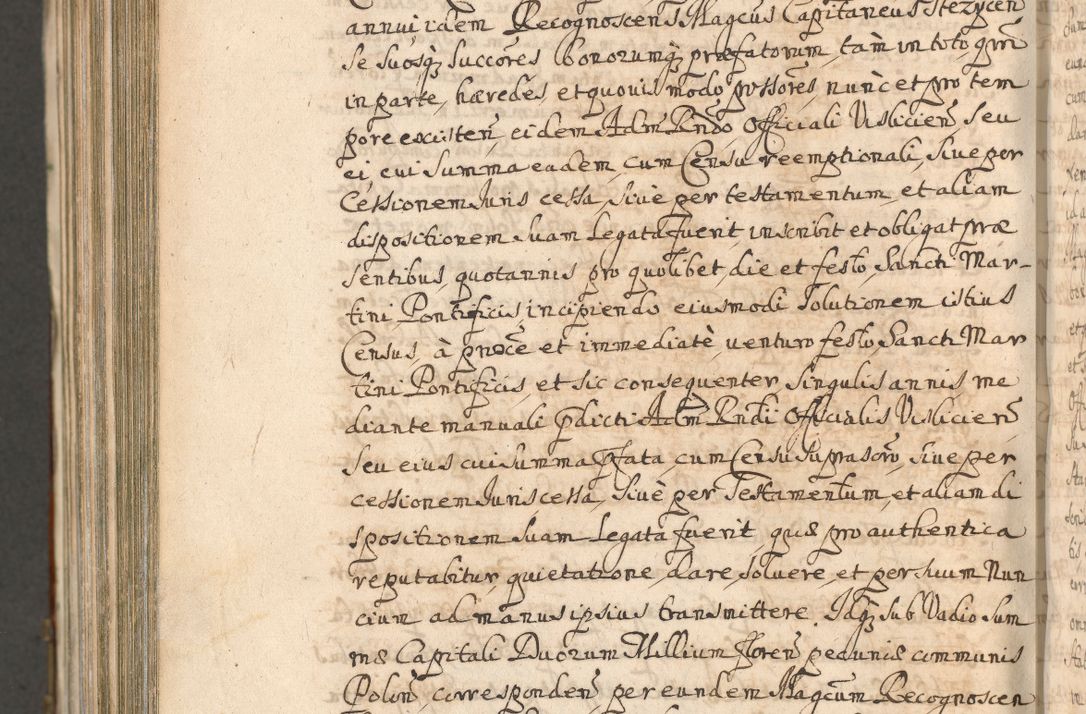 annui idem Recognoscens Magcus Capitaneus Stezycen
se suosq; succores bonorumq; præfatorum, tam in toto, qm
in parte, hæredes, et quovis modo pssores, nunc et pro tem
pore existen, eidem Adm Rndo Officiali Visliciens, seu
ei cui summa eadem, cum Censu reemptionali, sive per
Cessionem Juris cessa, sive per testamentum et aliam
dispositionem suam Legata fuerit, inscribit et obligat præ
sentibus, quotannis pro quolibet die et festo Sancti Mar-
tini Pontificis, incipiendo eiusmodi solutionem istius
Census, à pnoce et immediatè venturo festo Sancti Mar
tini Pontificis, et sic consequenter singulis annis me
diante manuali pdicti Adm Rndi Officialis Visliciens
seu eius cui summa pfata, cum Censu suprascro, sive per
cessionem Juris cessa, sivè per Testamentum, et aliam di
spositionem suam Legata fuerit quæ pro authentica
reputabitur quietatione dare, solvere, et per suum Nun
cium ad manus ipsius transmittere. Idq; sub Vadio sum
mæ Capitali Duorum Millium floren pecuniæ communis
Polon, corresponden, per eundem Magcum Recognoscen